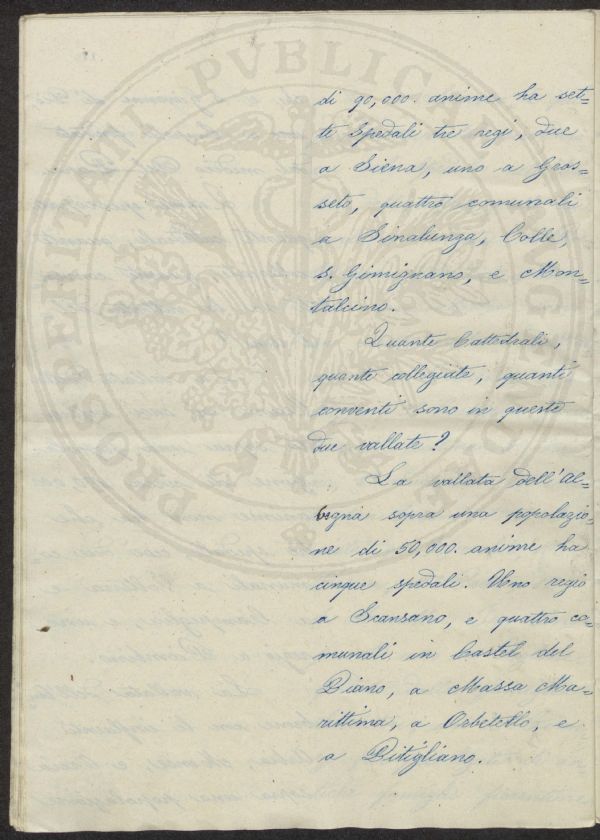 di 90,000. anime ha set=
te Spedali tre regj, due
a Siena, uno a Gros=
seto, quattro comunali
a Sinalunga, Colle,
S. Gimignano, e Mon=
talcino.
Quante Cattedrali,
quante collegiate, quanti
conventi sono in queste
due vallate?
La vallata dell'Al=
begna sopra una popolazio=
ne di 50,000. anime ha
cinque spedali. Uno regio
a Scansano, e quattro co=
munali in Castel del
Piano, a Massa Ma=
rittima, a Orbetello, e
a Pitigliano.